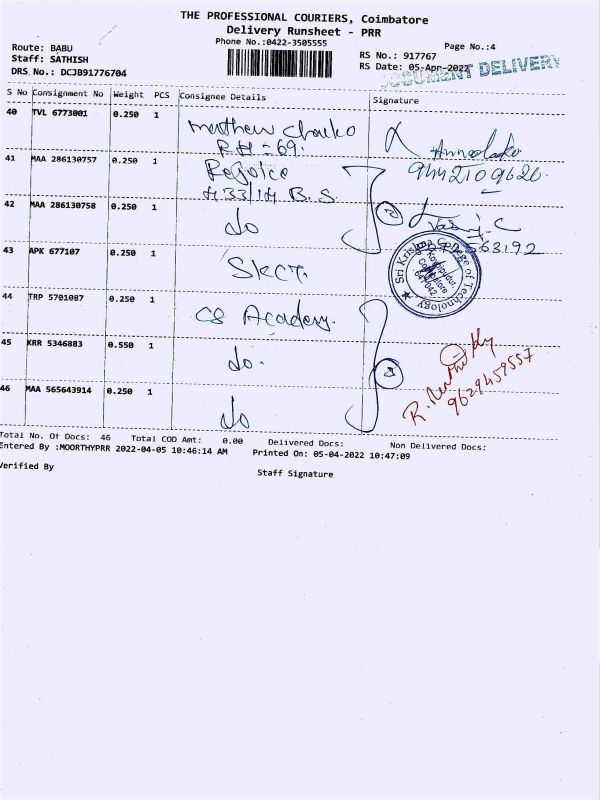 THE PROFESSIONAL COURIERS, Coimbatore
Delivery Runsheet - PRR
Phone No.:0422-3505555
Page No.:4
Route: BABU
Staff: SATHISH
DRS No.: DCJB91776704
RS No.: 917767
RS Date: 05-Apr-2022
DOCUMENT DELIVERY
S No Consignment No Weight PCS Consignee Details Signature
40 TVL 6773001 0.250 1 Mathew Chacko
RH-69.
41 MAA 286130757 0.250 1 Rejoice
433/14 B.S.
9442109620
42 MAA 286130758 0.250 1 do
2
563192
43 APK 677107 0.250 1 SKCT.
Sri Krishna College of Technology
Kovaipudur,
Coimbatore
641042
44 TRP 5701087 0.250 1 CS Academy.
45 KRR 5346883 0.550 1 do.
3
9629459557
46 MAA 565643914 0.250 1 do
Total No. Of Docs: 46 Total COD Amt: 0.00 Delivered Docs: Non Delivered Docs:
Entered By :MOORTHYPRR 2022-04-05 10:46:14 AM Printed On: 05-04-2022 10:47:09
Verified By
Staff Signature